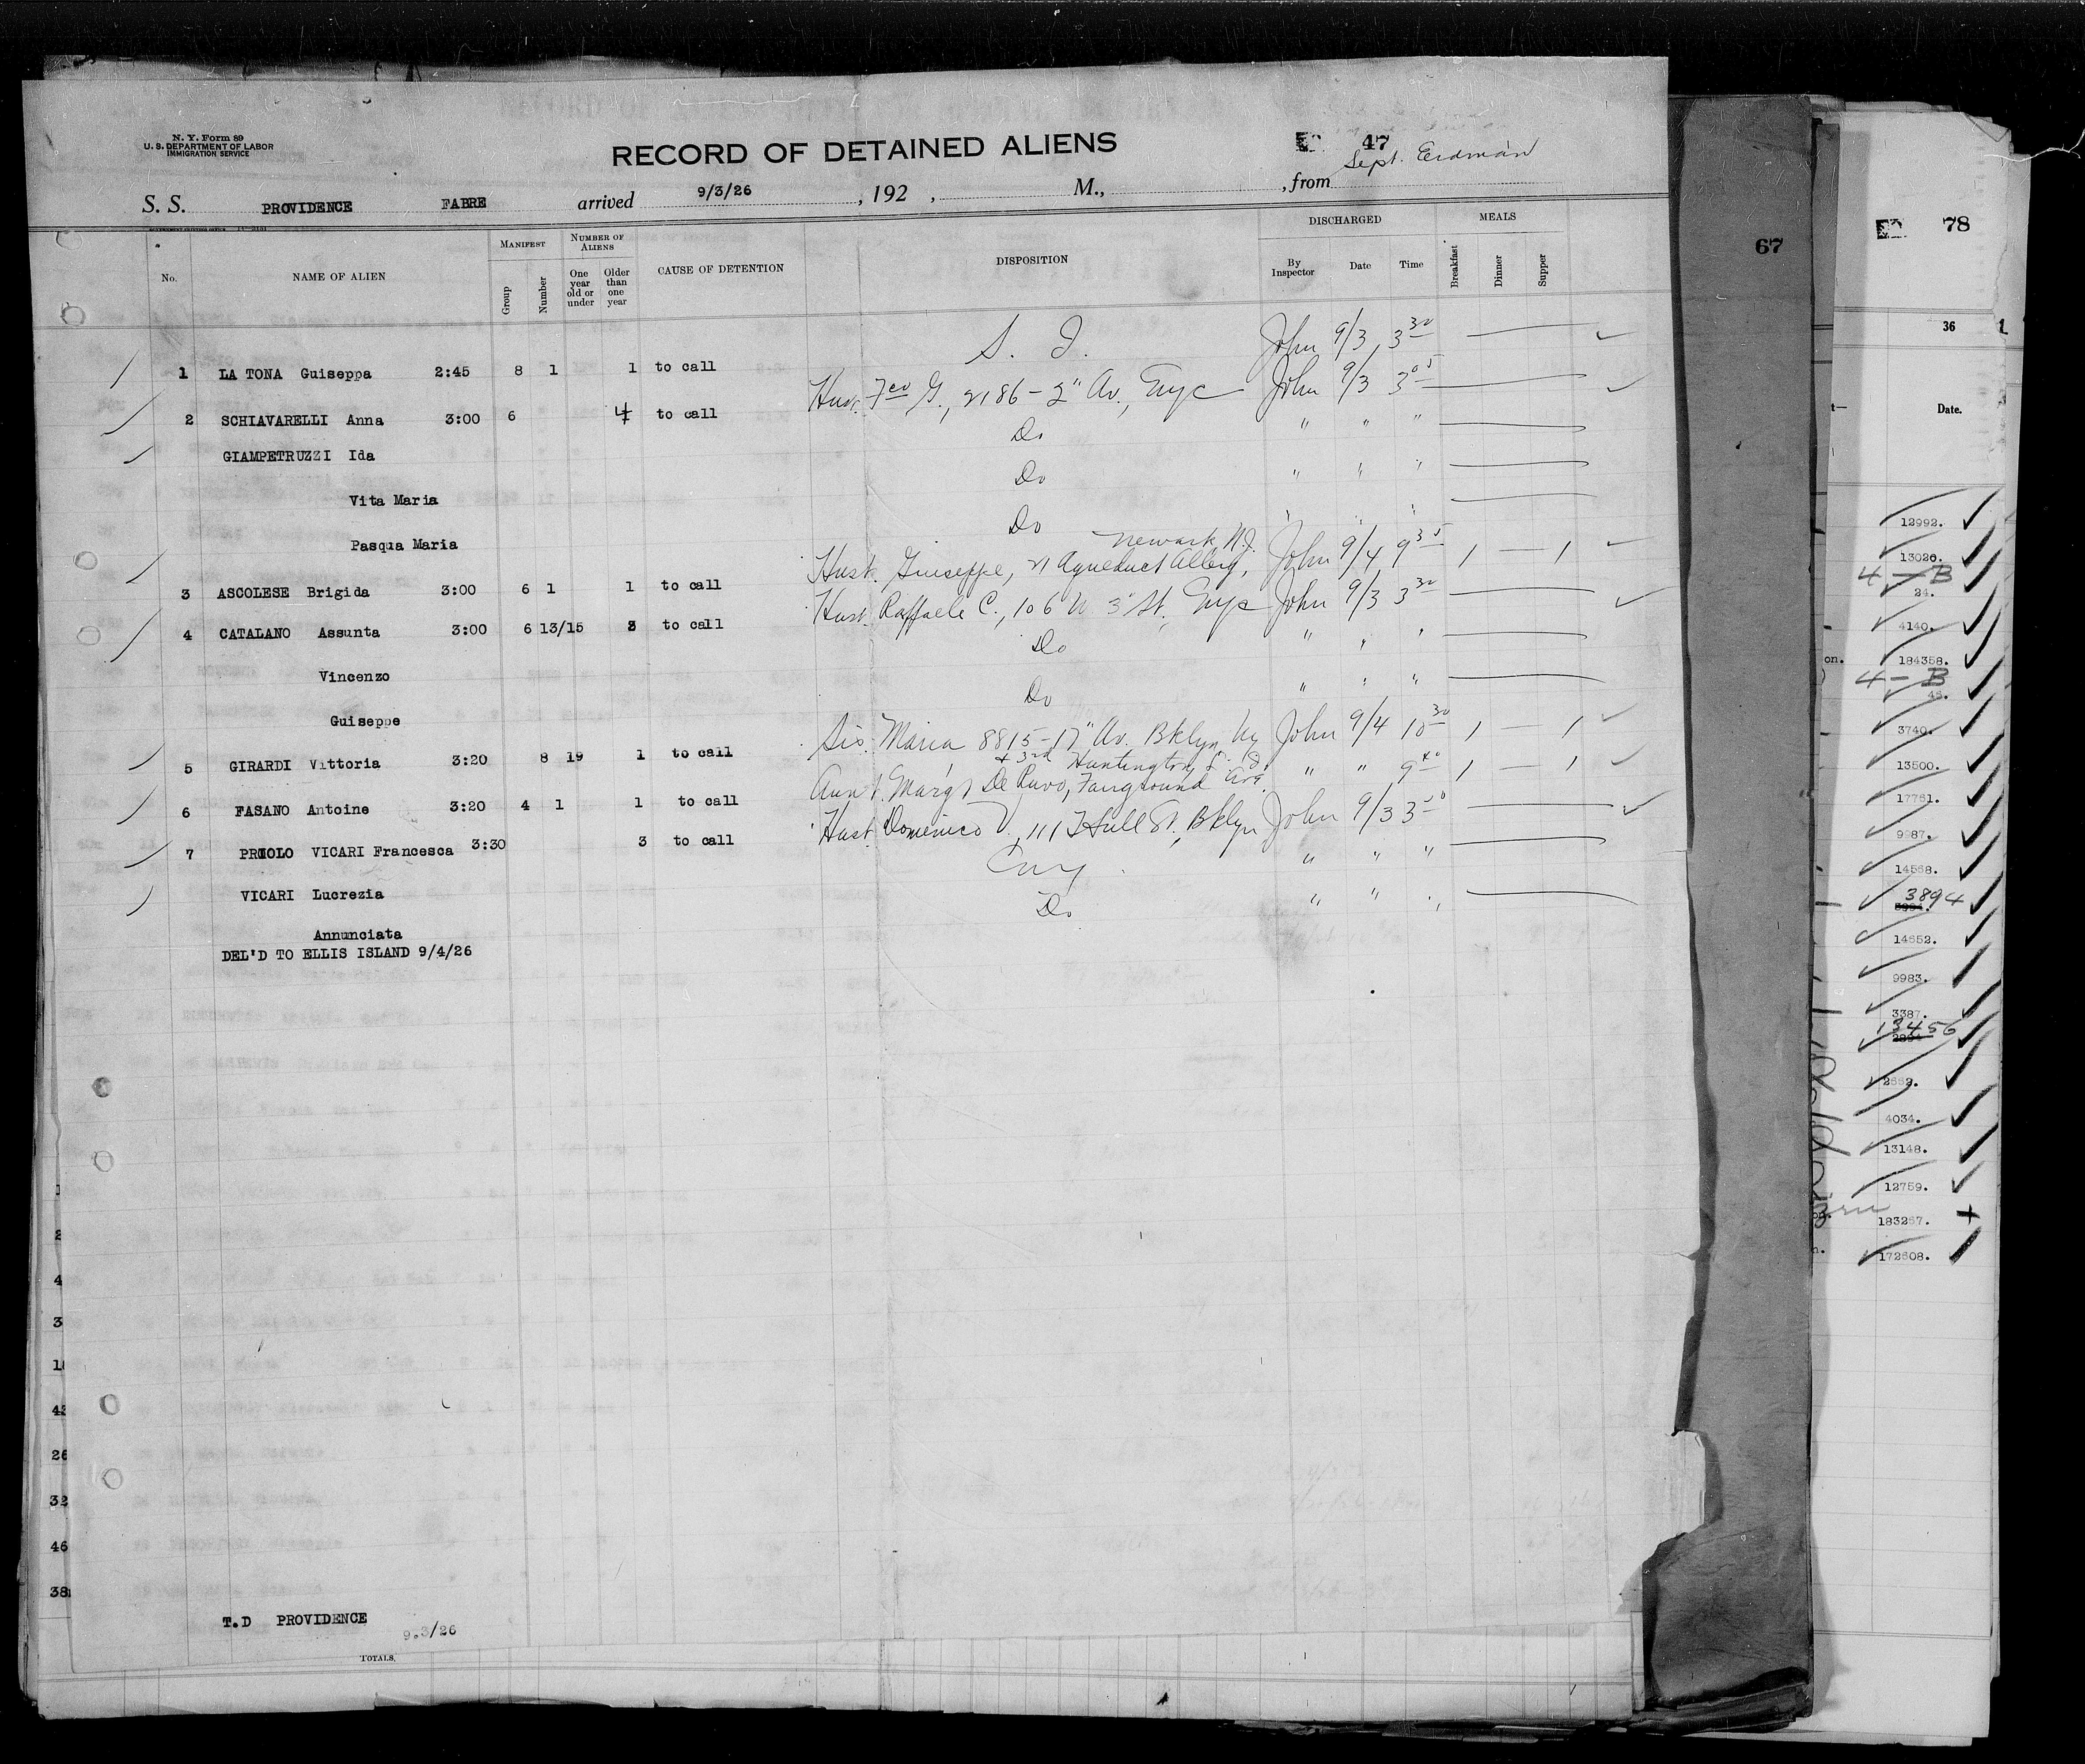 N. Y. Form 89
U. S. DEPARTMENT OF LABOR
IMMIGRATION SERVICE
RECORD OF DETAINED ALIENS
47
Sept. Erdman
S. S. PROVIDENCE FABRE arrived 9/3/26, 192 , M., , from
No. NAME OF ALIEN MANIFEST Group Number NUMBER OF ALIENS One year old or under Older than one year CAUSE OF DETENTION DISPOSITION DISCHARGED By Inspector Date Time MEALS Breakfast Dinner Supper
1 LA TONA Guiseppa 2:45 8 1 1 to call S. I. John 9/3 3 30
2 SCHIAVARELLI Anna 3:00 6 4 to call Hus. Fco G., 2186 - 2" Av., Nyc John 9/3 3 05
GIAMPETRUZZI Ida Do " " "
Vita Maria Do " " "
Pasqua Maria Do " " "
Newark N.J.
3 ASCOLESE Brigida 3:00 6 1 1 to call Husb. Giuseppe, 21 Aqueduct Alley, John 9/4 9 35 1 — 1
4 CATALANO Assunta 3:00 6 13/15 3 to call Hus. Raffaele C., 106 W. 3" St., Nyc John 9/3 3 30
Vincenzo Do " " "
Guiseppe Do " " "
5 GIRARDI Vittoria 3:20 8 19 1 to call Sis. Maria 8815-17" Av. Bklyn Ny John 9/4 10 30 1 — 1
+ 3rd Huntington
6 FASANO Antoine 3:20 4 1 1 to call Aunt De Ruvo, Fairground Ave. " " 9 40 1 — 1
7 PRIOLO VICARI Francesca 3:30 3 to call Hus. Domenico V., 111 Hull St., Bklyn John 9/3 3 50
VICARI Lucrezia " " "
Annunciata Do " " "
DEL'D TO ELLIS ISLAND 9/4/26
T.D PROVIDENCE 9.3/26
TOTALS,
1
2
4
3
46
32
26
38
67
78
36
Date.
12992.
13026.
4 — B
24.
4140.
on. 184358.
4 — B
45.
3740.
13500.
17761.
9987.
14568.
3894
14652.
9983.
3387.
13456
2652.
4034.
13148.
12759.
183267.
172608.